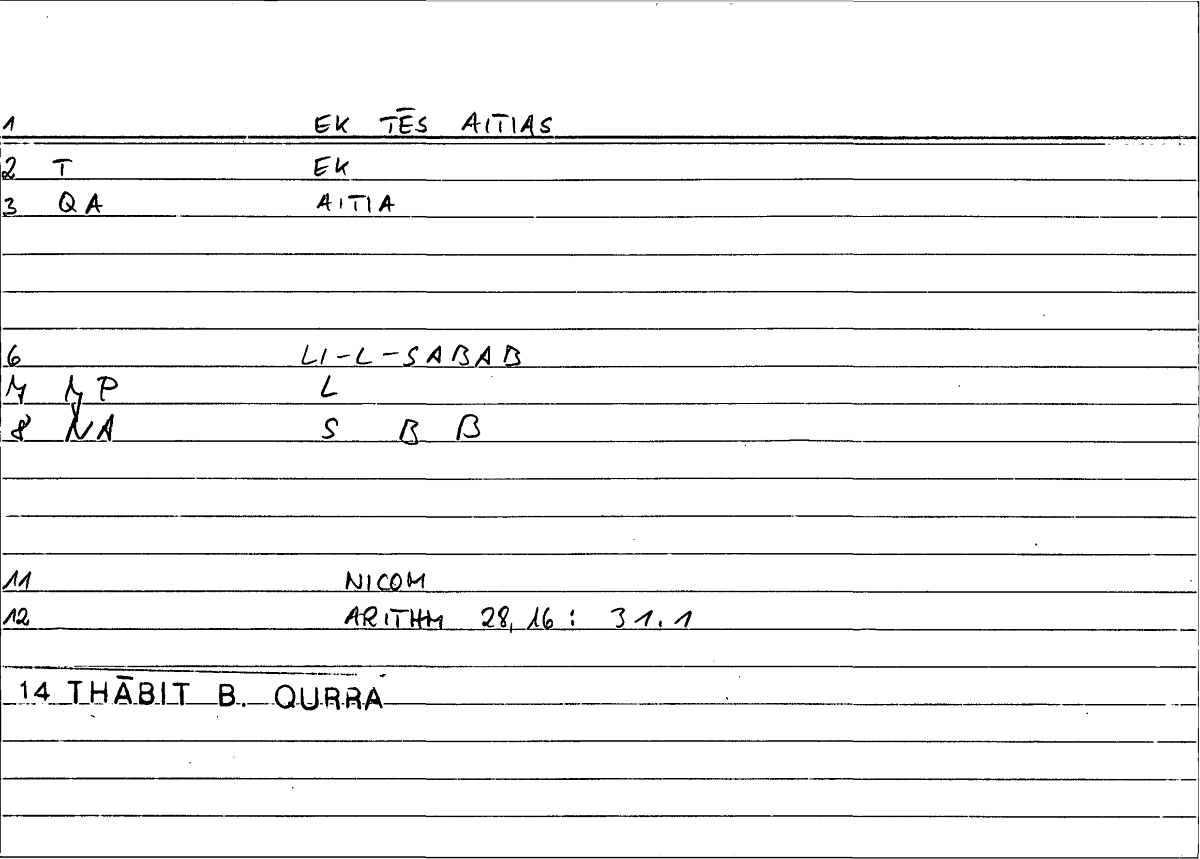 1 EK TĒS AITIAS
2 T EK
3 QA AITIA
6 LI-L-SABAB
L
8 NA S B B
11 NICOM
12 ARITHM 28,16: 31.1
14 THĀBIT B. QURRA